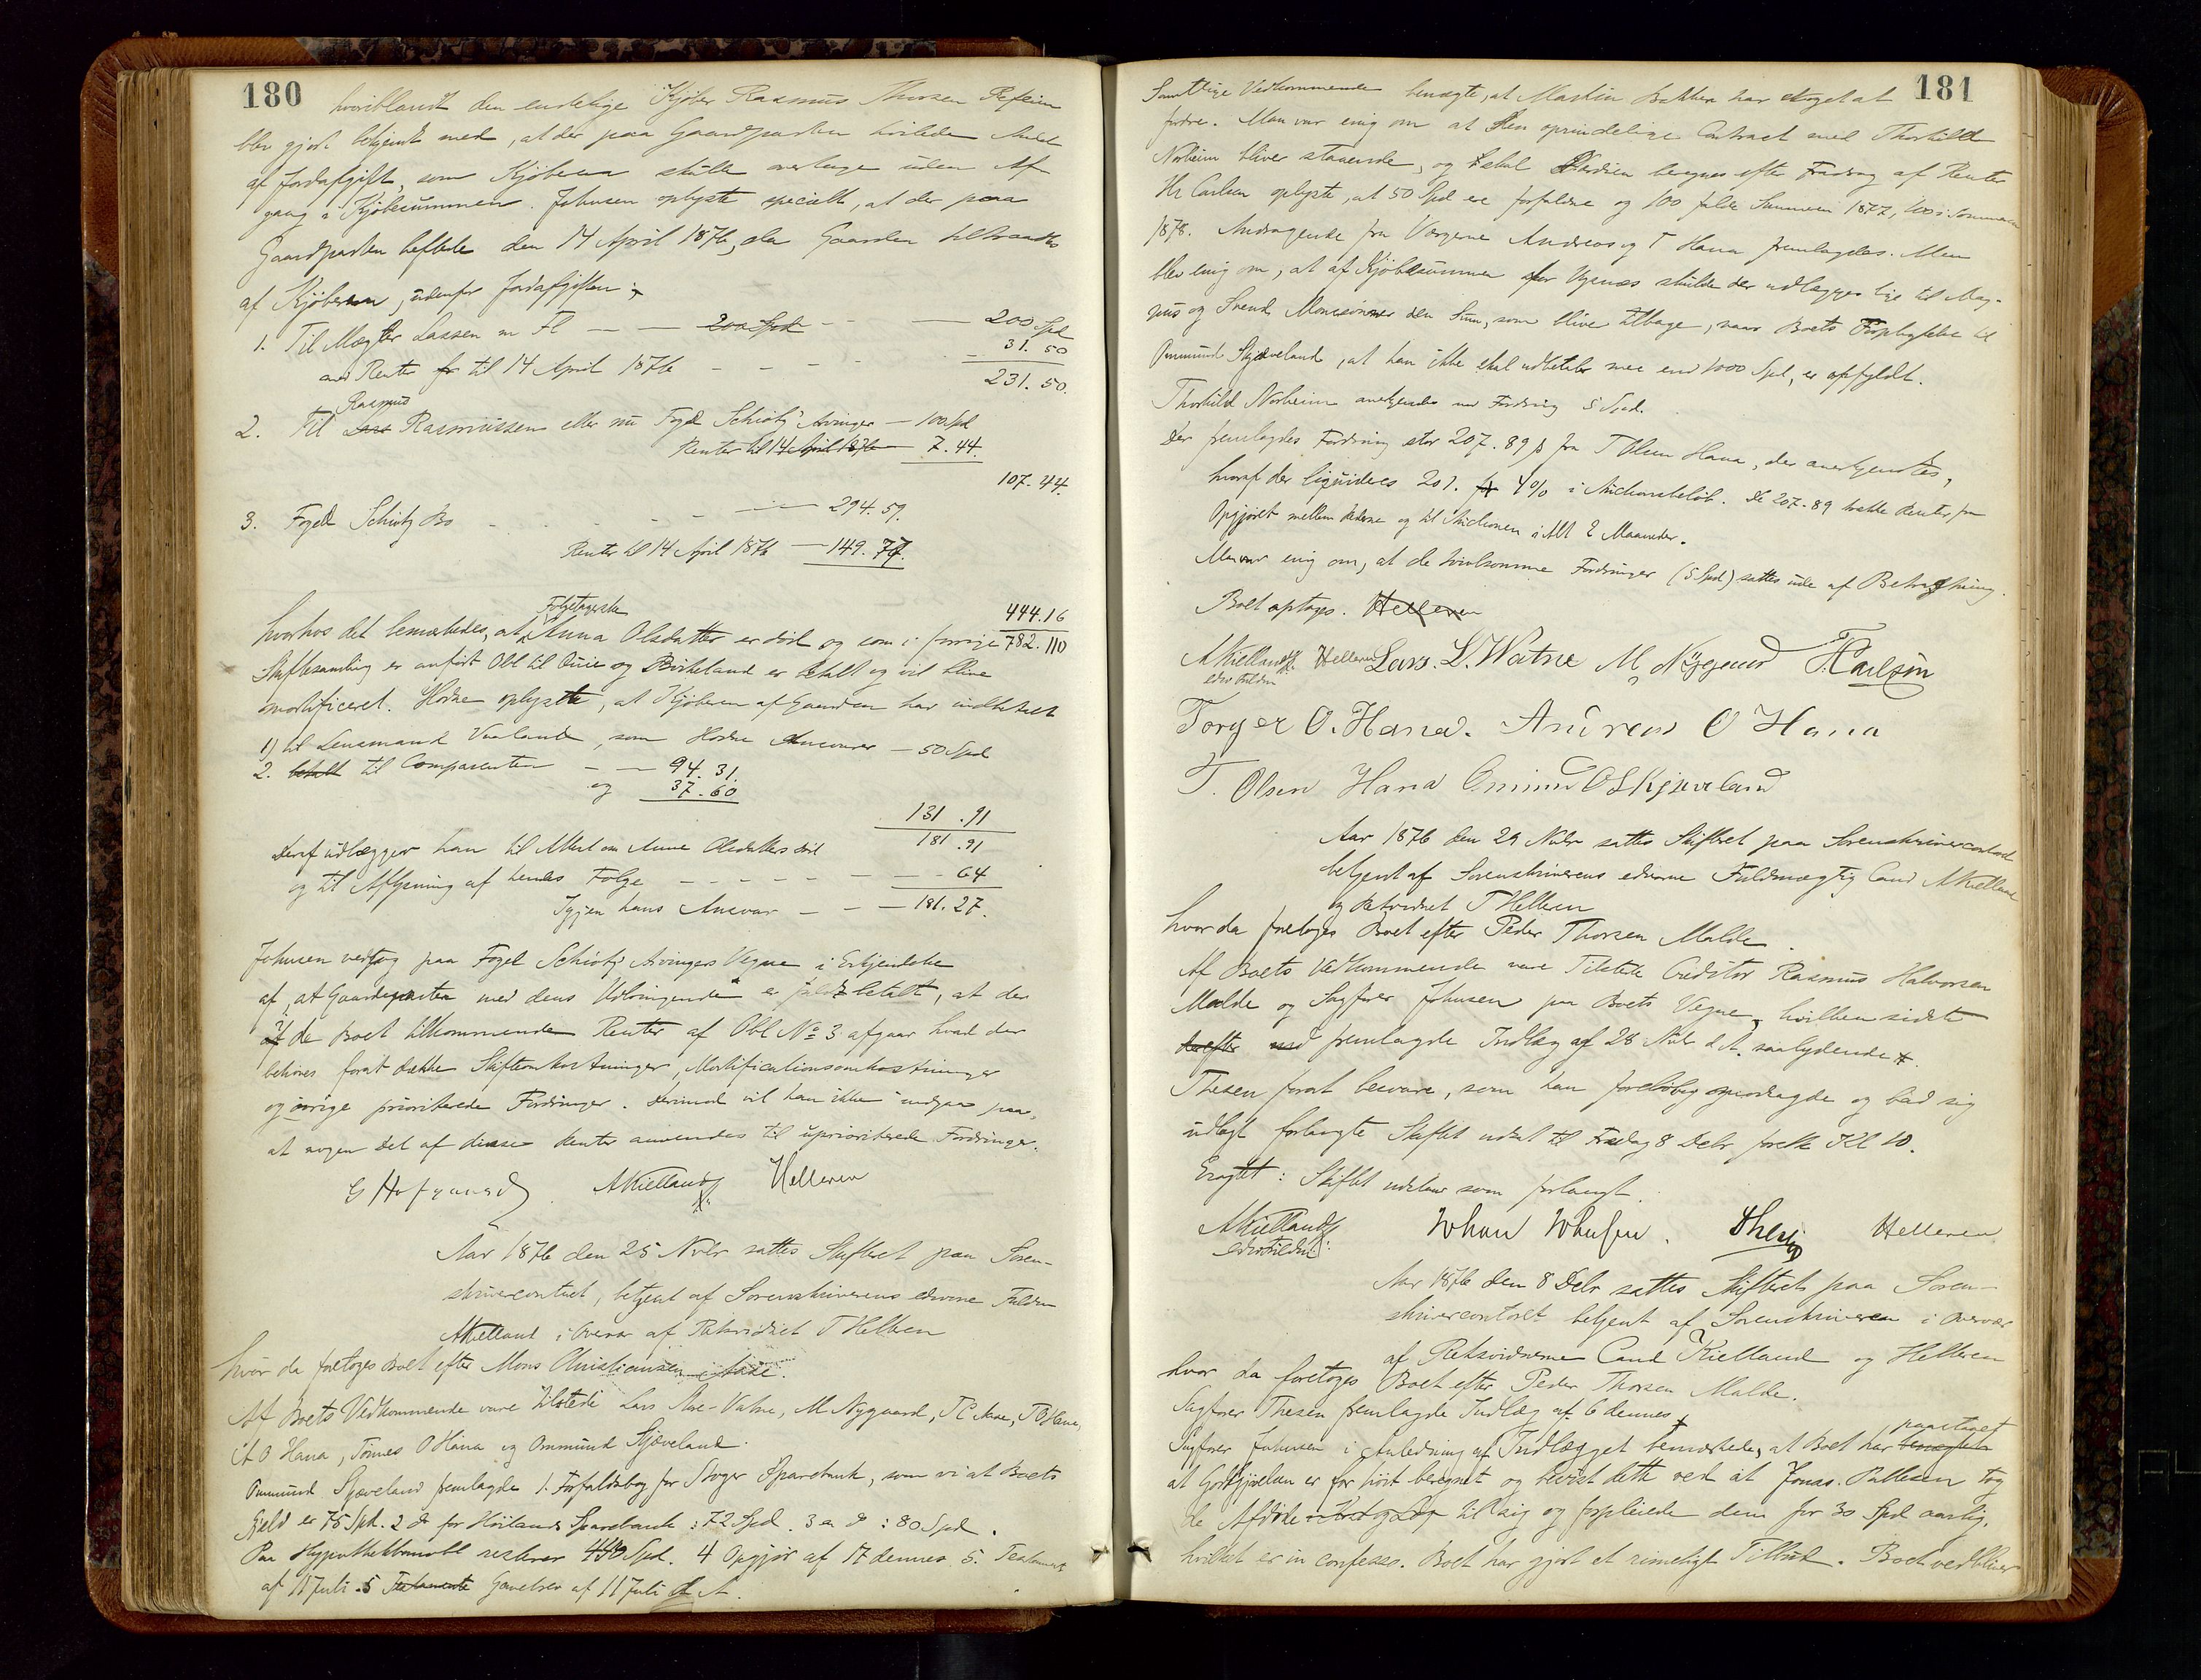 180
hvoriblandt den endelige Kjøber Rasmus Thorsen Refheim
blev gjort bekjendt med, at der paa Gaardparten hvilede Andel
af Jordafgift, som Kjøberen skulle overtage uden Af-
gang i Kjøbesummen. Johnsen oplyste specielt, at der paa
Gaardparten heftede den 14 April 1876, da Gaarden tiltraadtes
af Kjøberen, udenfor Jordafgiften:
1. Til Mægler Lassen m Fl — — 200 Spd — 200 Spd
med Renter for til 14 April 1876 — — — 31. 50
231. 50.
2. Til Lars Rasmus Rasmussen eller nu Foged Schiøtz Arvinger — 100 Spd
Renter til 14 April 1876 — 7. 44.
107. 44.
3. Foged Schiøtz Bo — — — 294. 59.
Renter til 14 April 1876 — 149. 77.
444. 16
hvorhos det bemærkedes, at Føgetagerske Anna Olsdatter er død og som i forrige 782. 110
Skiftesamling er anført Obl til Quie og Birkeland er betalt og vil blive
mortificeret. Hodne oplyste, at Kjøberen af Gaarden har indbetalt
1) til Lensmand Vaaland, som Hodne Ansvarer — 50 Spd
2. betalt til Comparenten — — 94. 31.
og 37. 60
131. 91
181. 91
Deraf udlægger han til Attest om Anne Olsdatters død
og til Aflysning af hendes Følge — — — — — 64
Igjen hans Ansvar — — — 181. 27.
Johnsen vedtog paa Foged Schiøtz Arvingers Vegne i Erkjendelse
af, at Gaardeparten med dens Udbringende er fuldt betalt, at der
af de Boet tilkommende Renter af Obl No 3 afgaar hvad der
behøves forat dække Skifteomkostninger, Mortificationsomkostninger
og øvrige prioriterede Fordringer. Derimod vil han ikke indgaa paa,
at nogen Del af disse Renter anvendes til uprioriterede Fordringer.
AKielland Helleren
Aar 1876 den 25 Nvbr sattes Skifteret paa Soren-
skrivercontoret, betjent af Sorenskriverens edsvorne Fuldm
AKielland i Overvær af Retsvidnet T Helleren
hvor da foretoges Boet efter Mons Christiansen
Af Boets Vedkommende vare tilstede Lars Watne, M Nygaard, T C Aase, T O Hana,
A O Hana, Tønnes O Hana og Ommund Skjæveland.
Ommund Skjæveland fremlagde 1. Forfaldsbog for Stoger Sparebank, som vi at Boets
Gjeld er 75 Spd. 2 do for Høilands Sparebank: 72 Spd. 3 en do: 80 Spd.
Paa Hypothekbanobl resterer 440 Spd. 4 Opgjør af 17 dennes 5. Testament
af 11 Juli. 5 Testamente Gavebrev af 11 Juli d A.
181
Samtlige Vedkommende benægte, at Martin Bakken har noget at
fordre. Man var enig om at den oprindelige Contract med Thorkild
Norheim bliver staaende, og skal Værdien beregnes efter Fradrag af Renter
Hr Carlsen oplyste, at 50 Spd ere forfaldne og 100 falde Sommeren 1877, 100 i Sommeren
1878. Andragende fra Værgerne Andreas og T Hana fremlagdes. Man
blev enig om, at af Kjøbesummen for Vigenæs skulde der udlægges lige til Mag-
nus og Svend Monssønner den Sum, som bliver tilbage, naar Boets Forpligtelse til
Ommund Skjæveland, at han ikke skal udbetale mere end 1000 Spd, er opfyldt.
Thorkild Norheim anerkjendes med Fordring 5 Spd.
Der fremlagdes Fordring stor 207. 89 ß fra T Olsen Hana, der anerkjendtes,
hvoraf der liquideres 201. 4% i Auctionsbeløb. De 207. 89 trække Renter fra
Opgjøret mellem Parterne og til Auctionen i Alt 2 Maaneder.
Man var enig om, at de tvivlsomme Fordringer (5 Spd) sattes ude af Betragtning.
Boet optoges. Helleren
AKielland edsv Fuldm Helleren Lars. L. Watne M Nygaard T. Carlsen
Torger O. Hana. Andreas O Hana
T. Olsen Hana Ommund O Skjæveland
Aar 1876 den 29 Nvbr sattes Skifteret paa Sorenskrivercontoret
betjent af Sorenskriverens edsvorne Fuldmægtig Cand AKielland
og Retsvidnet T Helleren
hvor da foretoges Boet efter Peder Thorsen Malde.
Af Boets Vedkommende vare Tilstede Creditor Rasmus Halvorsen
Malde og Sagfører Johnsen paa Boets Vegne, hvilken sidste
derefter med fremlagde Indlæg af 28 Nvbr d A. saalydende
Thesen forat besvare, som han foreløbig modsagde og bad sig
udlagt forlangte Skiftet udsat til Fredag 8 Debr førstk Kl 10.
Eragtet: Skiftet udsættes som forlangt.
AKielland edsv Fuldm: Johan Johnsen. Thesen Helleren
Aar 1876 den 8 Debr sattes Skifteret paa Soren-
skrivercontoret betjent af Sorenskriveren i Overvær
af Retsvidnerne Cand Kielland og Helleren
hvor da foretoges Boet efter Peder Thorsen Malde.
Sagfører Thesen fremlagde Indlæg af 6 dennes
Sagfører Johnsen i Anledning af Indlægget bemærkede, at Boet har benægtet paastaaet
at Godtgjørelsen er for høit beregnet og bevist dette ved at Jonas Pallesen tog
de Afdøde i Kost og Løn til sig og forpleiede dem for 30 Spd aarlig,
hvilket er in confesso. Boet har gjort et rimeligt Tilbud. Boet vedbliver